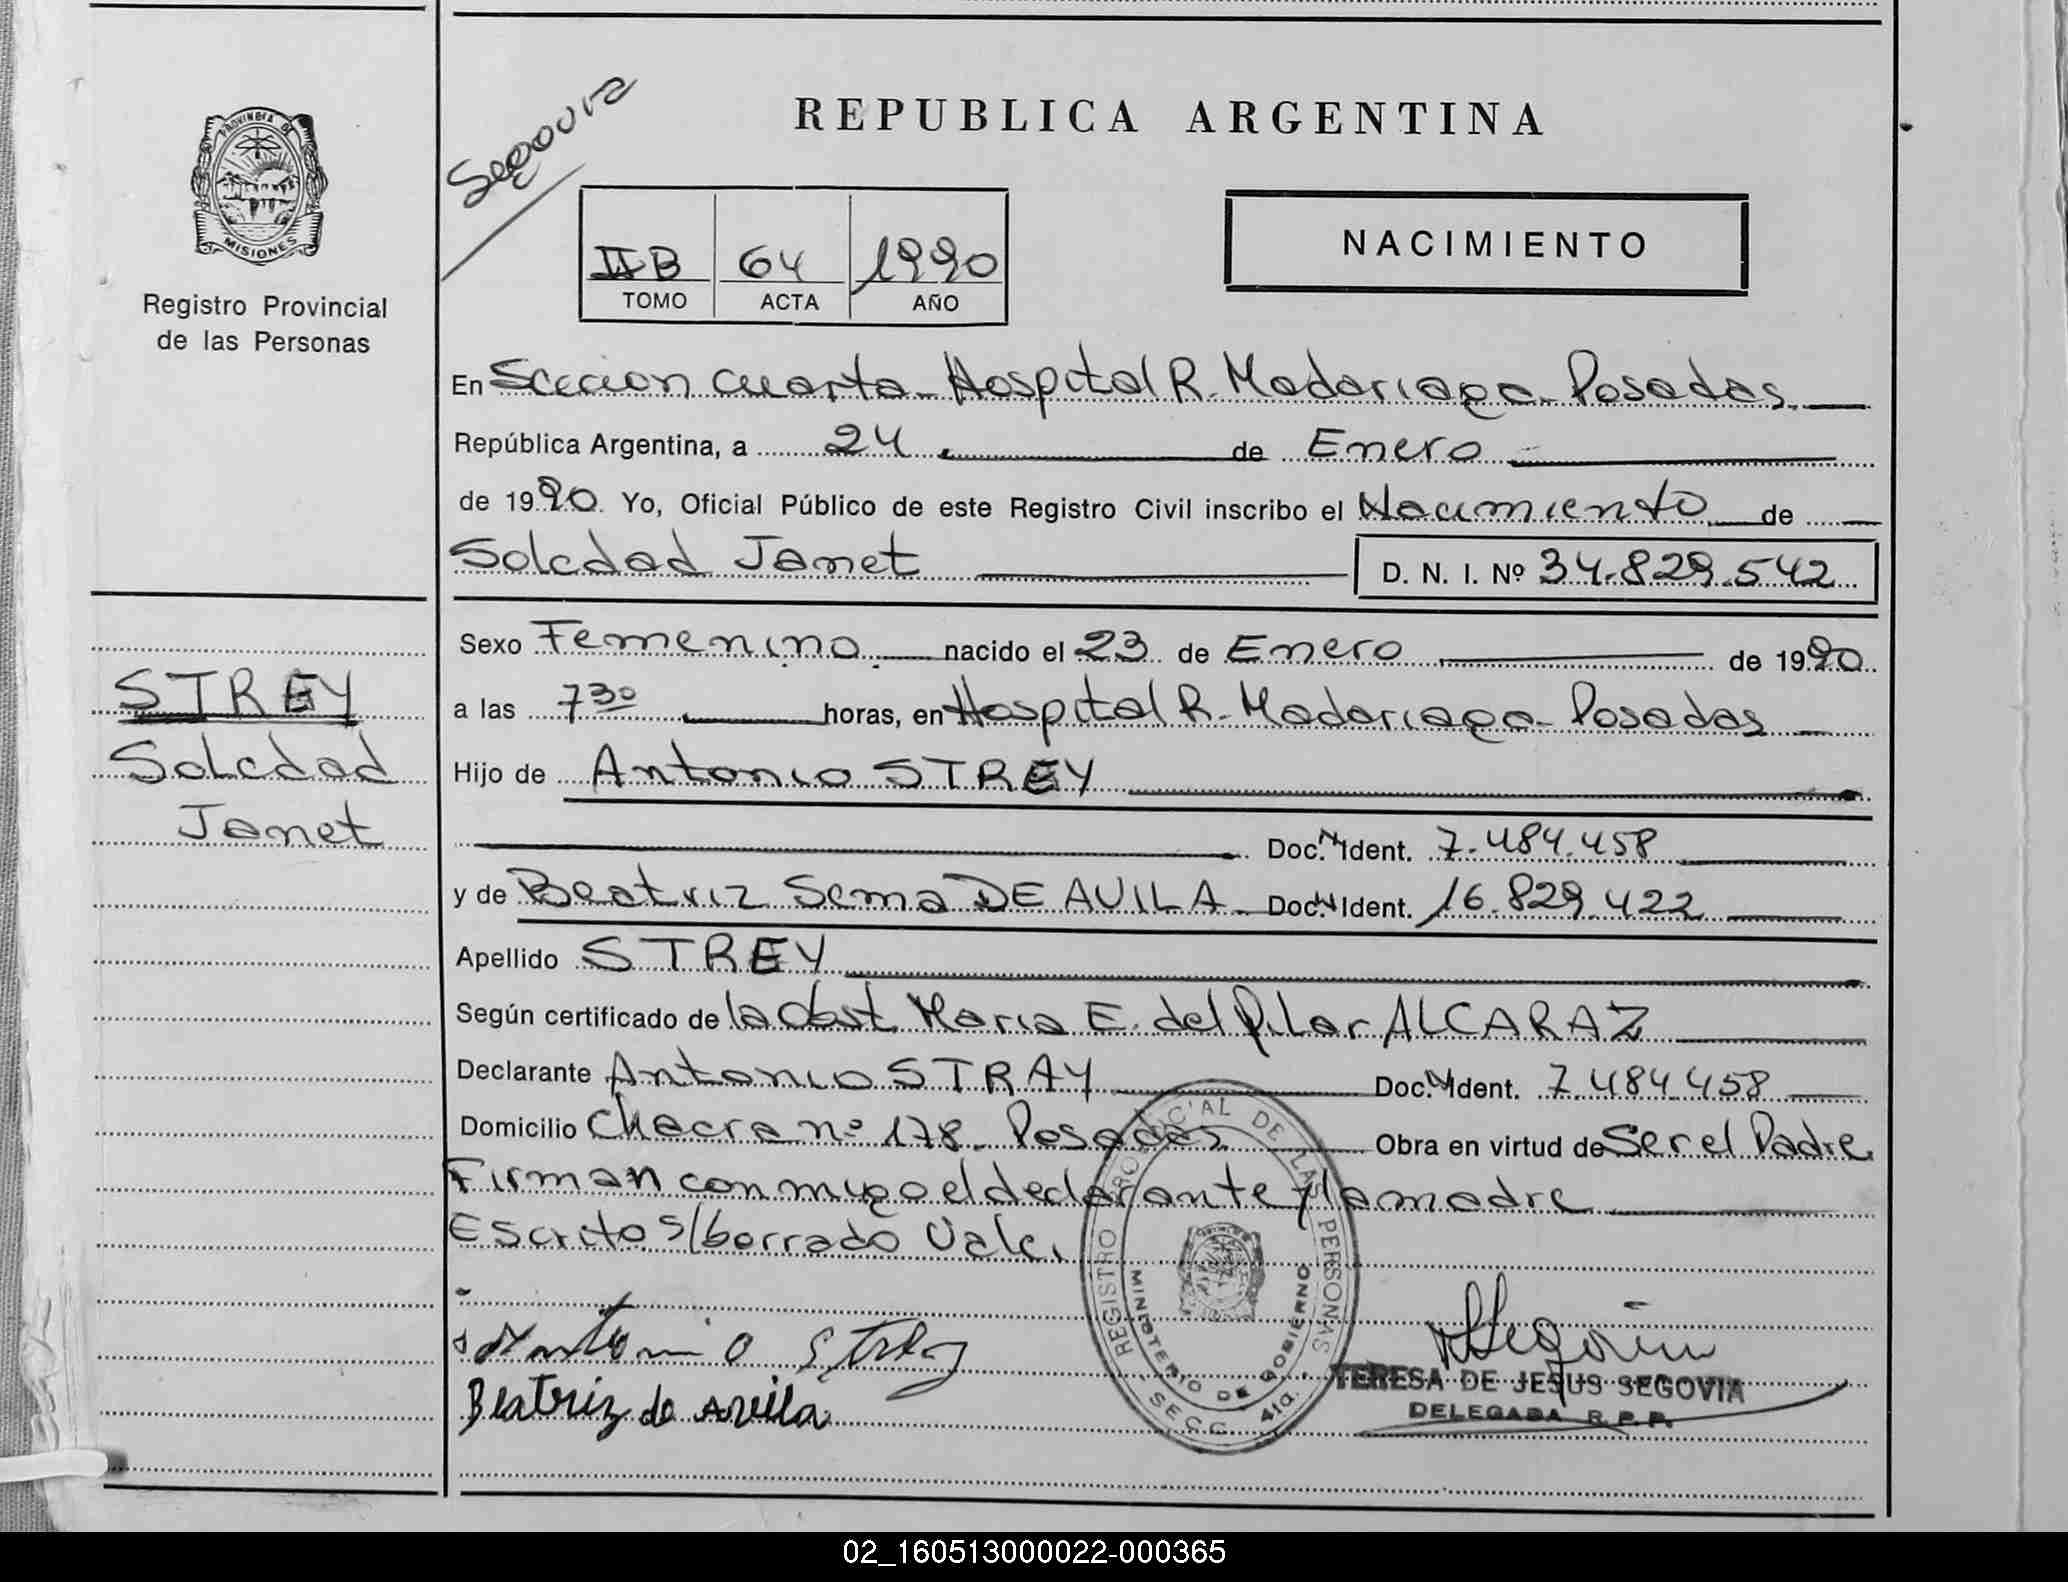 PROVINCIA DE
MISIONES
Registro Provincial
de las Personas
Segovia
REPUBLICA ARGENTINA
IIB 64 1990
TOMO ACTA AÑO
NACIMIENTO
En Seccion cuarta - Hospital R. Madariaga - Posadas.
República Argentina, a 24 de Enero
de 1990 Yo, Oficial Público de este Registro Civil inscribo el Nacimiento de
Soledad Janet D. N. I. Nº 34.829.542
Sexo Femenino nacido el 23 de Enero de 1990
a las 7 30 horas, en Hospital R. Madariaga - Posadas
Hijo de Antonio STREY
Doc. N Ident. 7.484.458
y de Beatriz Sema DE AVILA Doc. N Ident. 16.829.422
Apellido STREY
Según certificado de la Obst Maria E. del Pilar ALCARAZ
Declarante Antonio STRAY Doc. N Ident. 7.484.458
Domicilio Chacra nº 178. Posadas Obra en virtud de Ser el Padre.
Firman conmigo el declarante y la madre
Escrito s/borrado Vale.
STREY
Soledad
Janet
Antonio Strey
Beatriz de Avila
REGISTRO PROVINCIAL DE LAS PERSONAS
MINISTERIO DE GOBIERNO
SECC. 4ta.
Segovia
TERESA DE JESUS SEGOVIA
DELEGADA R. P. P.
02_160513000022-000365